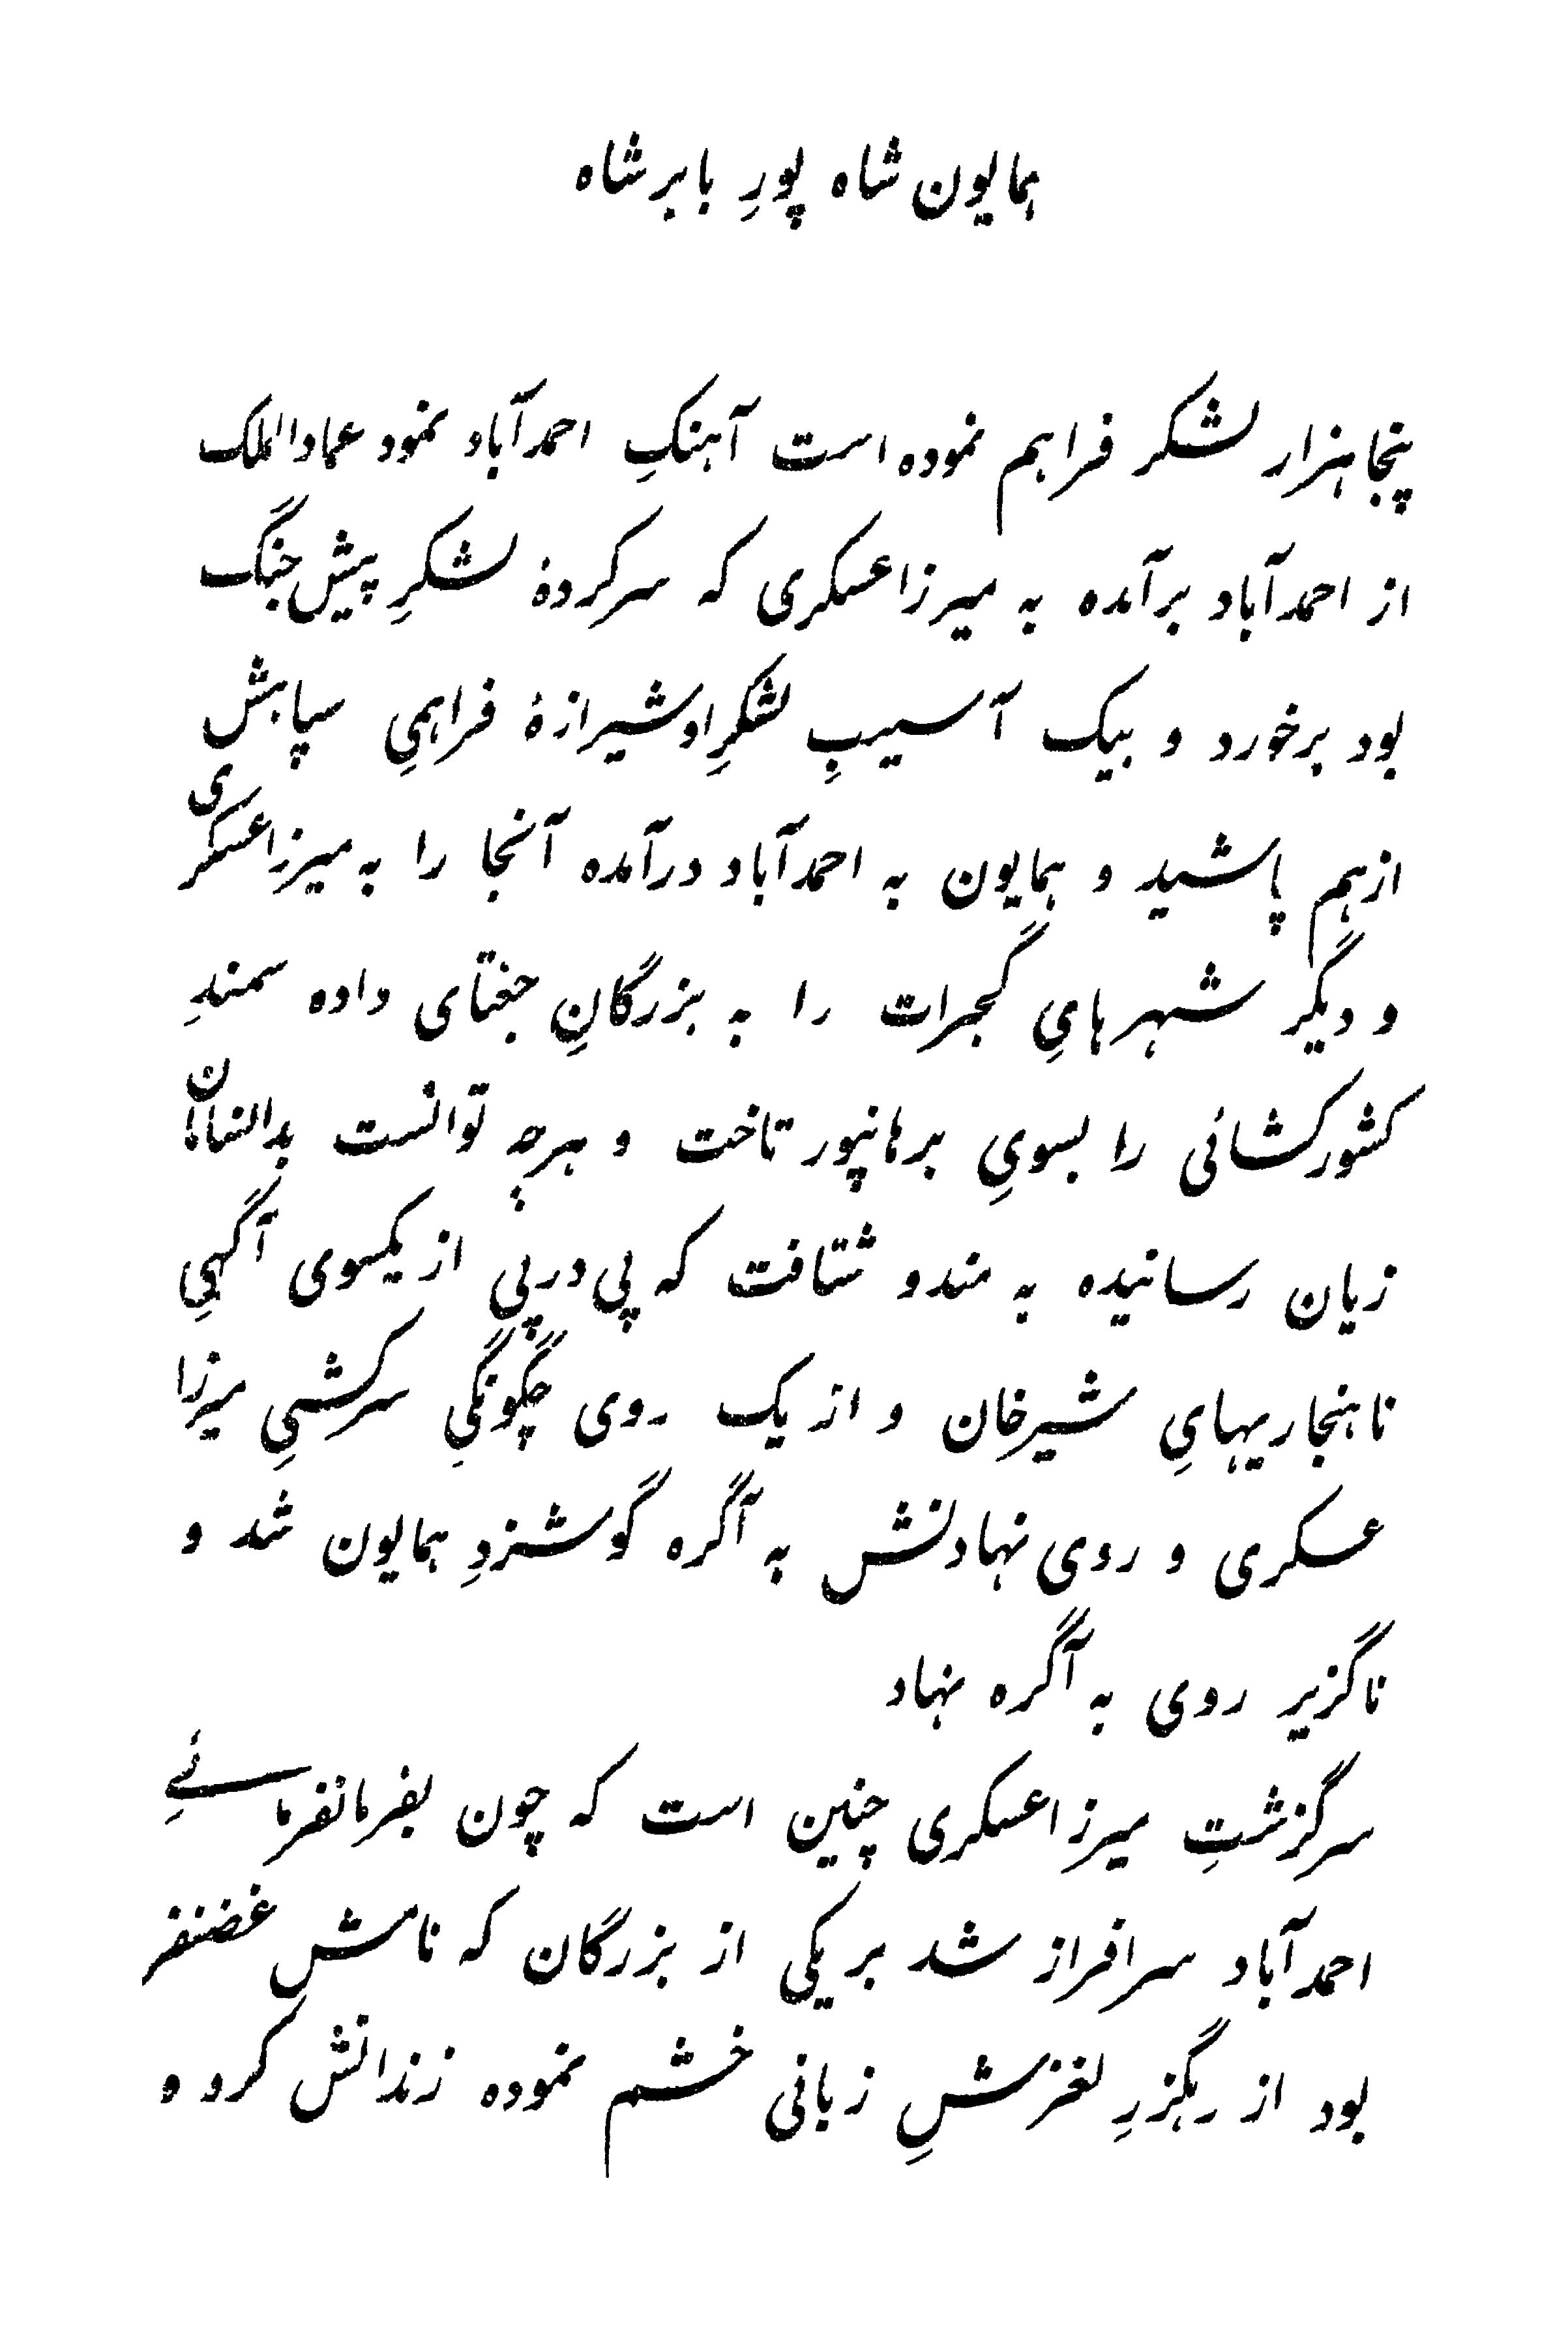 همایون شاه پورِ بابرشاه
پنجاهزار لشکر فراهم نموده است آهنکِ احمدآباد نمود عمادالملک
از احمدآباد برآمده به میرزا عسکری که سرکردهٔ لشکرِ پیش جنگ
بود برخورد و بیک آسیبِ لشکرِ او شیرازهٔ فراهمیِ سپاهش
ازهم پاشید و همایون به احمدآباد درآمده آنجا را به میرزا عسکری
و دیگر شهرهایِ گجرات را به بزرگانِ جغتای داده سمندِ
کشورکشائی را بسویِ برهانپور تاخت و هرچه توانست بدانسامان
زیان رسانیده به مندو شتافت که پی درپی از یکسوی آگهیِ
ناهنجاریهایِ شیرخان و از یک روی چگونگیِ سرکشیِ میرزا
عسکری و روی نهادنش به آگره گوشزدِ همایون شد و
ناگزیر روی به آگره نهاد
سرگزشتِ میرزا عسکری چنین است که چون بفرمانفرمائیِ
احمدآباد سرافراز شد بر یکی از بزرگان که نامش غضنفر
بود از رهگزرِ لغزشِ زبانی خشم نموده زندانش کرد و